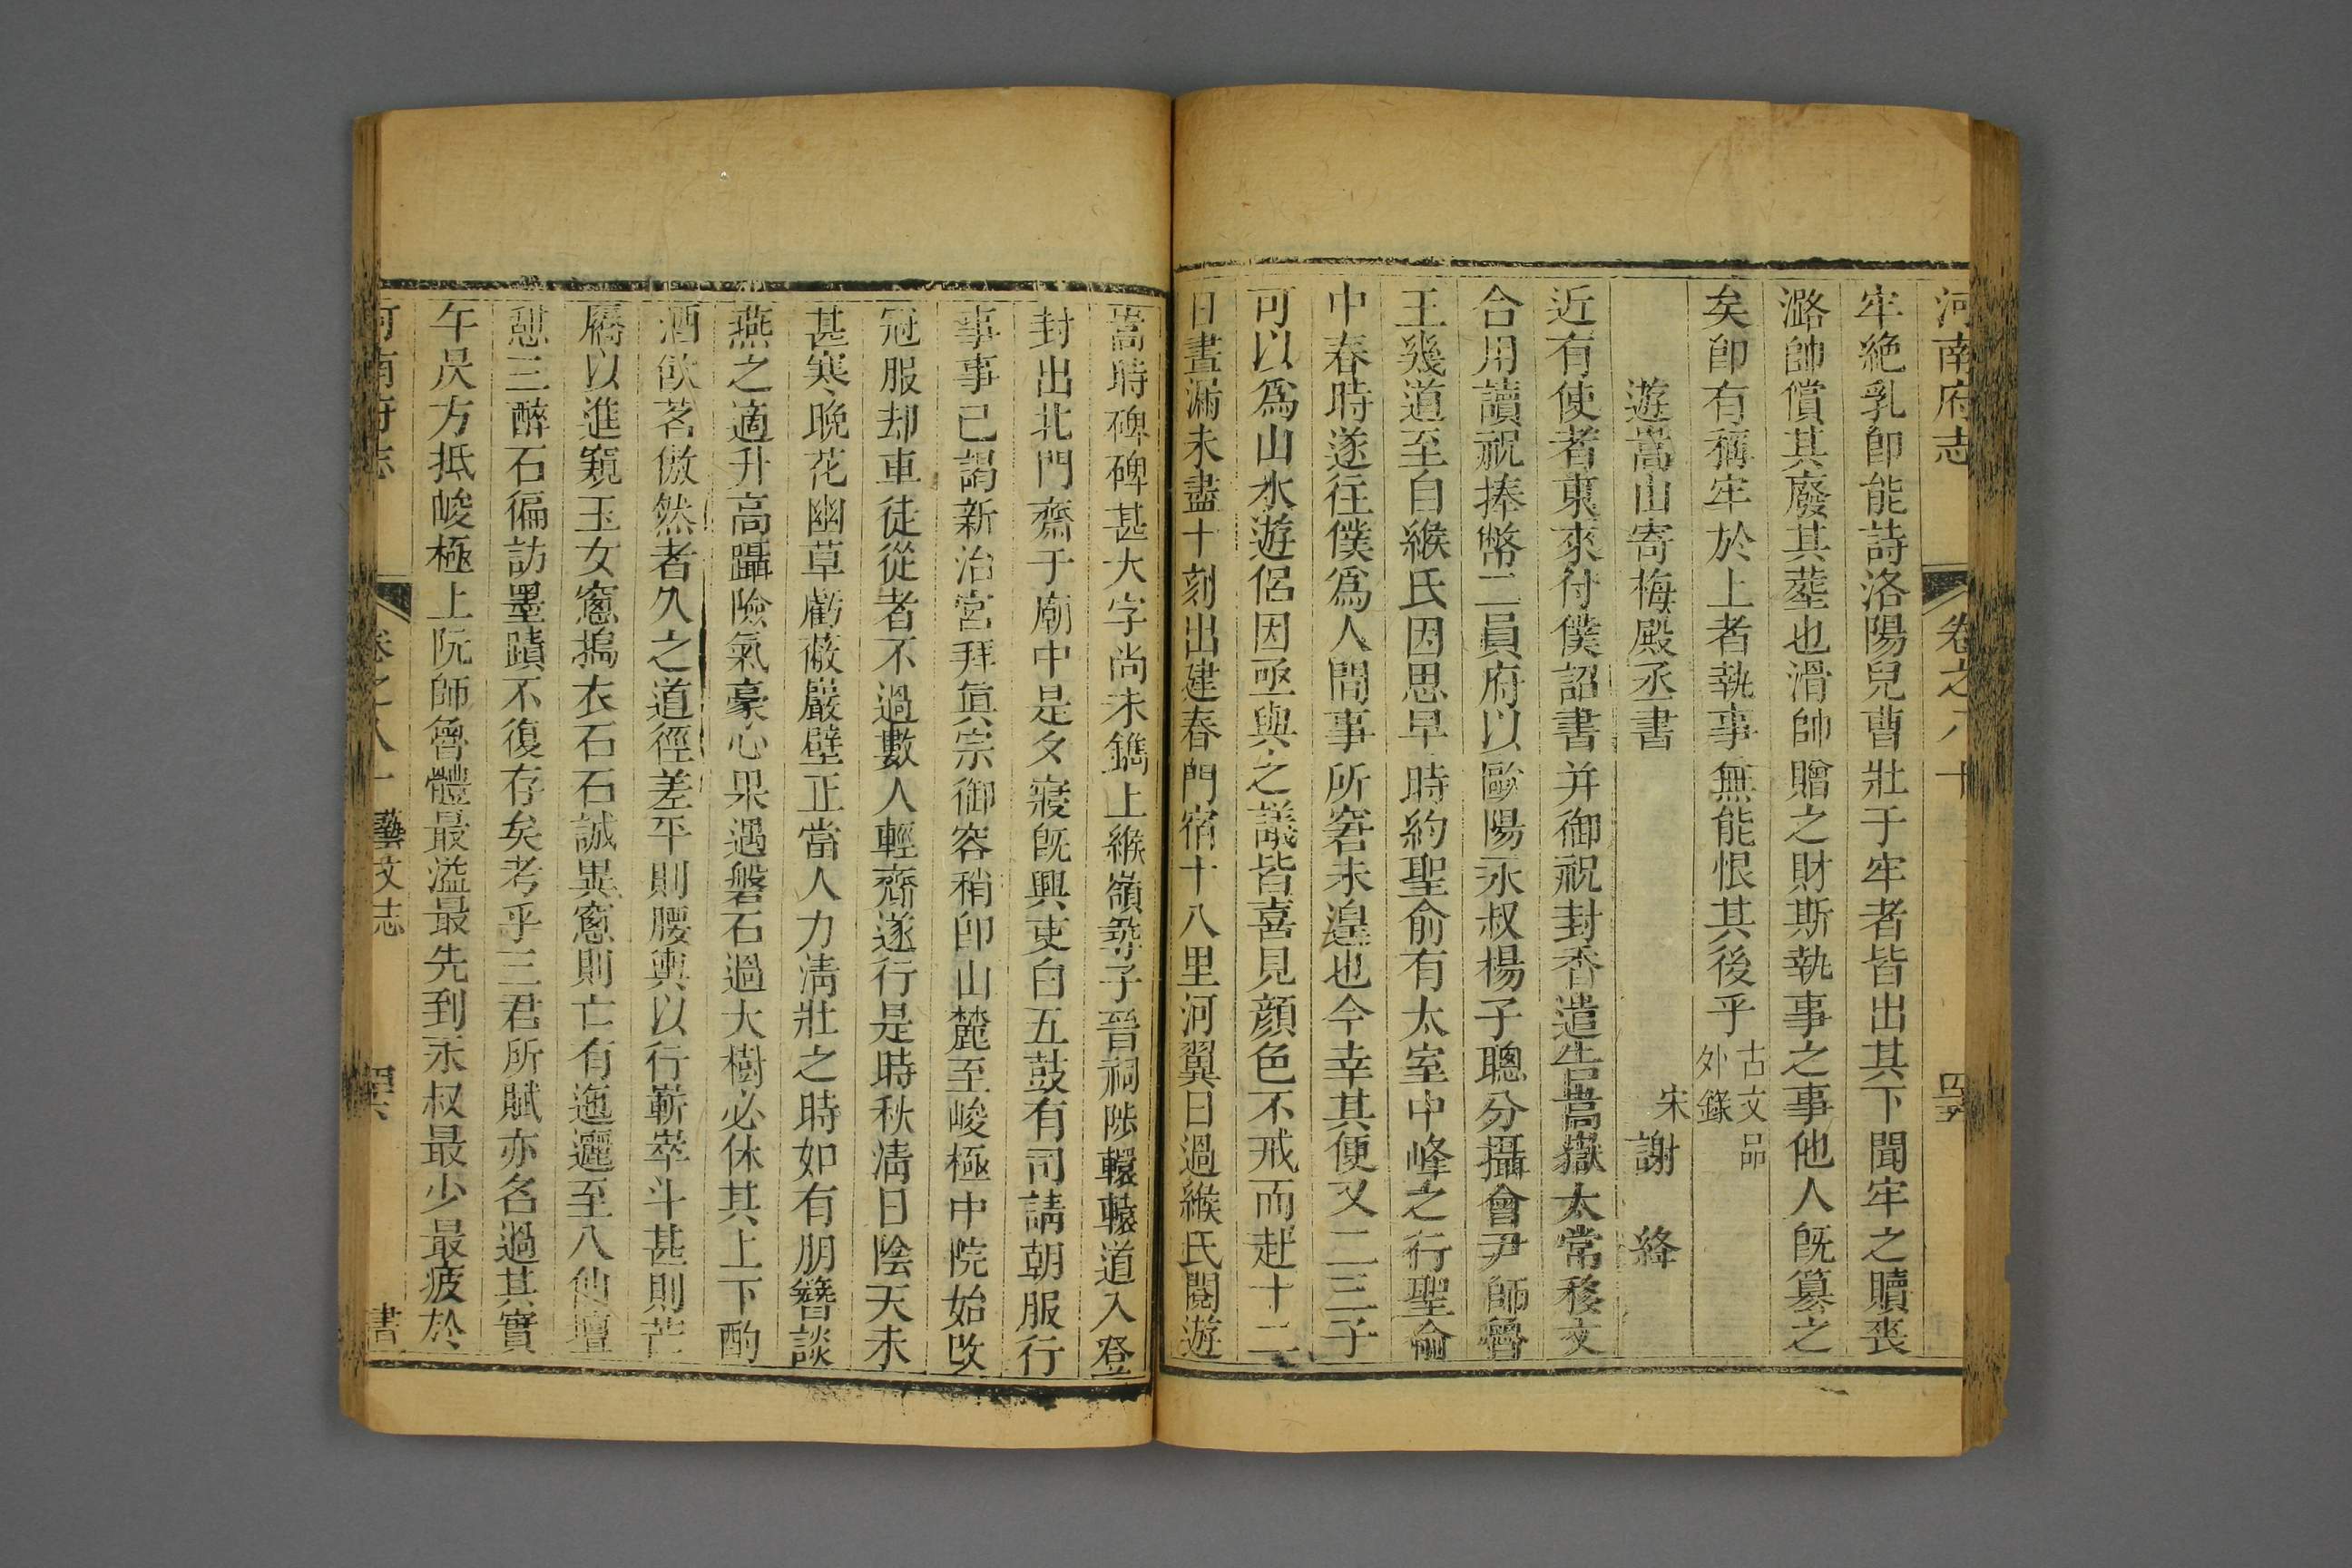 河南府志 卷之八十 四五
牢絶乳卽能詩洛陽兒曹壯于牢者皆出其下聞牢之贖喪
潞帥償其廢其塟也滑帥贈之財斯執事之事他人旣篡之
矣卽有稱牢於上者執事無能恨其後乎古文品外錄
遊嵩山寄梅殿丞書
宋謝 絳
近有使者東來付僕詔書并御祝封香遣告嵩嶽太常移文
合用讀祝捧幣二員府以歐陽永叔楊子聰分攝會尹師魯
王幾道至自緱氏因思早時約聖俞有太室中峰之行聖俞
中春時遂往僕爲人間事所窘未遑也今幸其便又二三子
可以爲山水遊侶因亟與之議皆喜見顔色不戒而赴十二
日晝漏未盡十刻出建春門宿十八里河翼日過緱氏閱遊
嵩時碑碑甚大字尚未鐫上緱嶺尋子晉祠陟轘轅道入登
封出北門齋于廟中是夕寢旣興吏白五鼓有司請朝服行
事事已謁新治宮拜眞宗御容稍卽山麓至峻極中院始改
冠服却車徒從者不過數人輕齎遂行是時秋淸日陰天未
甚寒晚花幽草虧蔽嚴壁正當人力淸壯之時如有朋簪談
燕之適升高躡險氣豪心果遇磐石過大樹必休其上下酌
酒飲茗傲然者久之道徑差平則腰輿以行嶄崒斗甚則芒
屩以進窺玉女窻搗衣石石誠異窻則亡有迤邐至八仙壇
憇三醉石徧訪墨蹟不復存矣考乎三君所賦亦名過其實
午昃方抵峻極上阮師魯體最溢最先到永叔最少最疲於
河南府志 卷之八十 藝文志 書